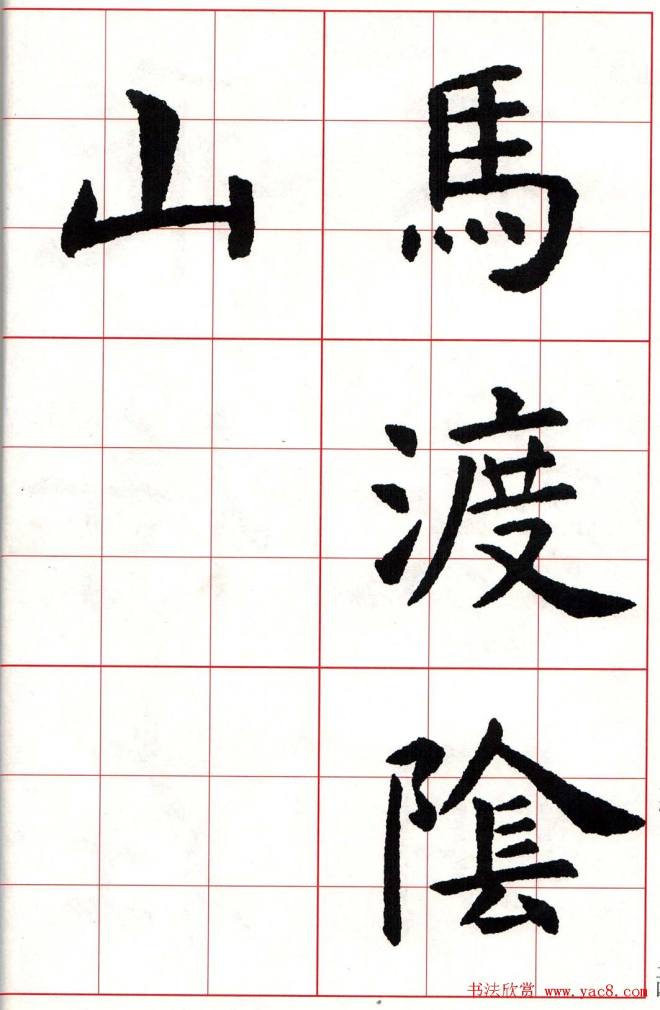 馬渡陰
山
书法欣赏 www.yac8.com